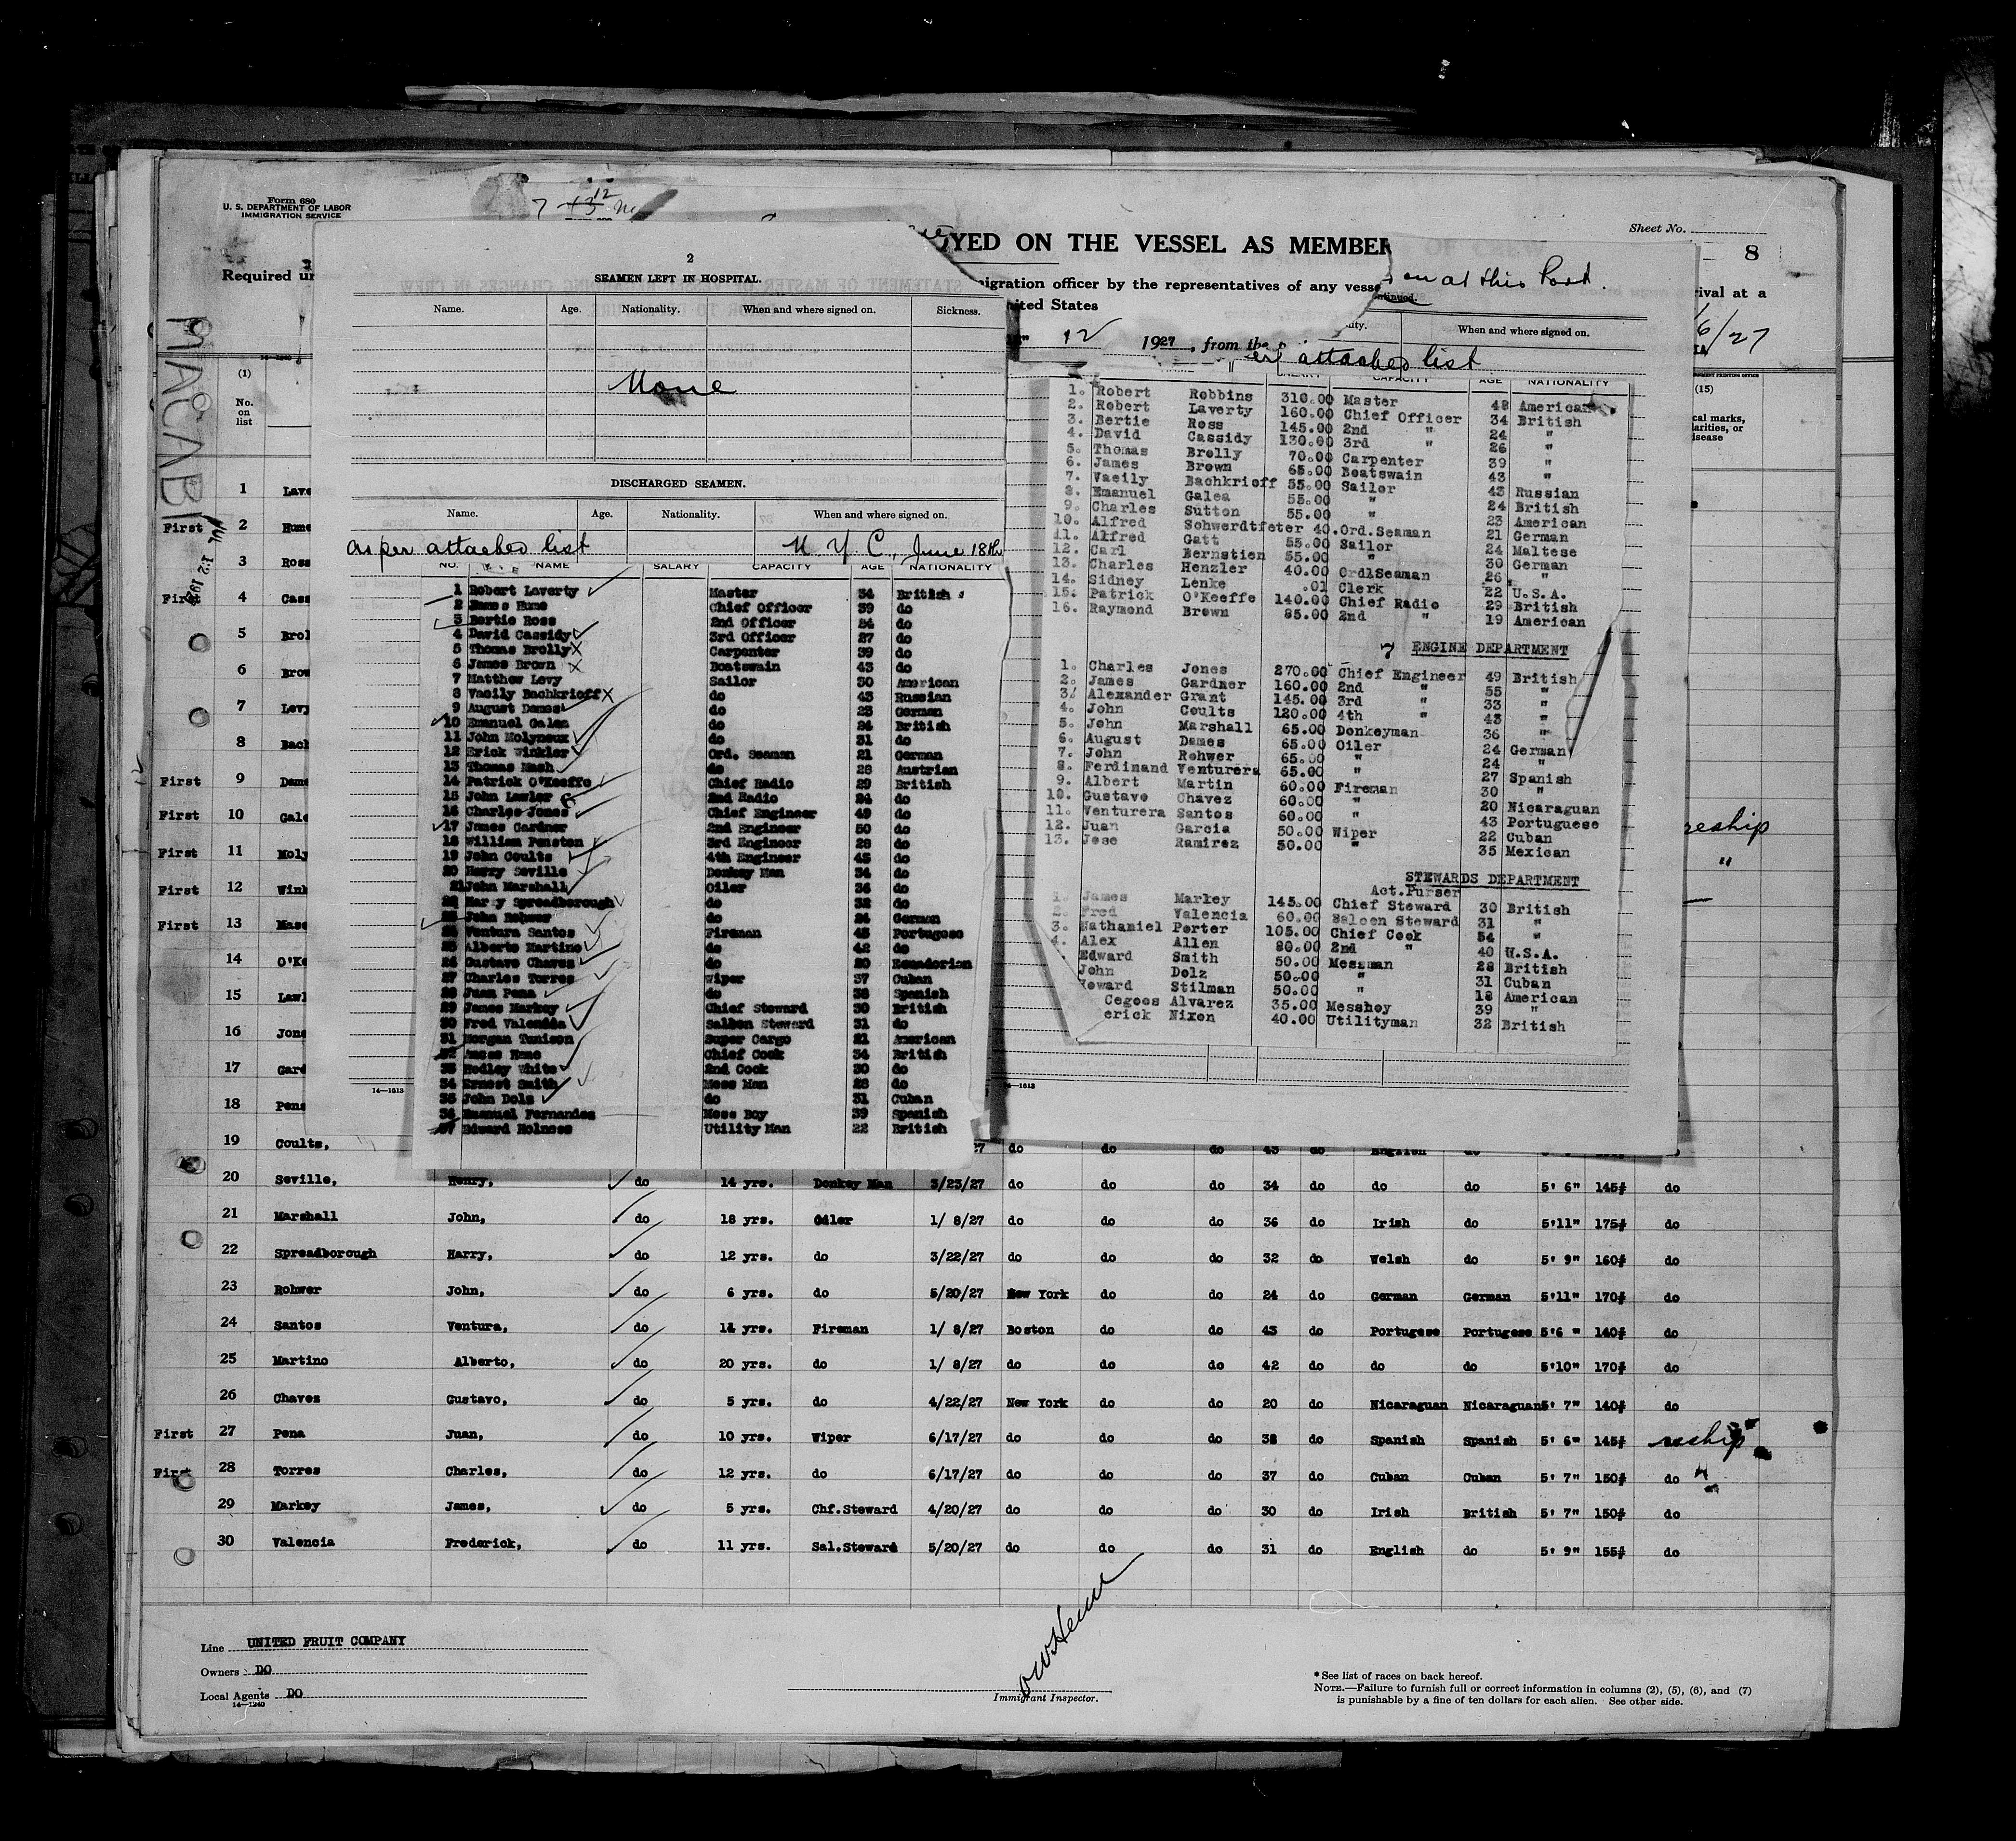 Form 680
U. S. DEPARTMENT OF LABOR
IMMIGRATION SERVICE
Sheet No.
8
YED ON THE VESSEL AS MEMBER
Required un
igration officer by the representatives of any vesse
rival at a
ited States
12 1927, from the
6/27
MACABI
JUL 12 1927
2
SEAMEN LEFT IN HOSPITAL.
Name. Age. Nationality. When and where signed on. Sickness.
None
DISCHARGED SEAMEN.
Name. Age. Nationality. When and where signed on.
as per attached list N. Y. C., June 18th
NO. NAME SALARY CAPACITY AGE NATIONALITY
1 Robert Laverty Master 34 British
2 James Hume Chief Officer 39 do
3 Bertie Ross 2nd Officer 24 do
4 David Cassidy 3rd Officer 27 do
5 Thomas Brolly X Carpenter 39 do
6 James Brown X Boatswain 43 do
7 Matthew Levy Sailor 30 American
8 Vasily Bachkrioff X do 43 Russian
9 August Dames do 23 German
10 Emanuel Galea do 24 British
11 John Molyneux do 31 do
12 Erick Winkler Ord. Seaman 21 German
13 Thomas Mash do 28 Austrian
14 Patrick O'Keeffe Chief Radio 29 British
15 John Lawler 2nd Radio 24 do
16 Charles Jones Chief Engineer 49 do
17 James Gardner 2nd Engineer 50 do
18 William Penston 3rd Engineer 28 do
19 John Coults 4th Engineer 43 do
20 Henry Seville Donkey Man 34 do
21 John Marshall Oiler 36 do
22 Harry Spreadborough do 32 do
23 John Rohwer do 24 German
24 Ventura Santos Fireman 43 Portugese
25 Alberto Martino do 42 do
26 Gustavo Chaves do 20 Ecuadorian
27 Charles Torres Wiper 37 Cuban
28 Juan Pena do 38 Spanish
29 James Markey Chief Steward 30 British
30 Fred Valencia Saloon Steward 31 do
31 Morgan Tunison Super Cargo 21 American
32 Amos Hume Chief Cook 34 British
33 Hedley White 2nd Cook 30 do
34 Ernest Smith Mess Man 28 do
35 John Dolz do 31 Cuban
36 Emanuel Fernandez Mess Boy 39 Spanish
37 Edward Holness Utility Man 22 British
14—1613
on at this Port.
When and where signed on.
attached list
CAPACITY AGE NATIONALITY
1. Robert Robbins 310.00 Master 48 American
2. Robert Laverty 160.00 Chief Officer 34 British
3. Bertie Ross 145.00 2nd " 24 "
4. David Cassidy 130.00 3rd " 26 "
5. Thomas Brolly 70.00 Carpenter 39 "
6. James Brown 65.00 Boatswain 43 "
7. Vasily Bachkrioff 55.00 Sailor 43 Russian
8. Emanuel Galea 55.00 " 24 British
9. Charles Sutton 55.00 " 23 American
10. Alfred Schwerdtfeter 40. Ord.Seaman 21 German
11. Alfred Gatt 55.00 Sailor 24 Maltese
12. Carl Bernstien 55.00 " 30 German
13. Charles Henzler 40.00 Ord.Seaman 26 "
14. Sidney Lenke .01 Clerk 22 U.S.A.
15. Patrick O'Keeffe 140.00 Chief Radio 29 British
16. Raymond Brown 85.00 2nd " 19 American
ENGINE DEPARTMENT
1. Charles Jones 270.00 Chief Engineer 49 British
2. James Gardner 160.00 2nd " 55 "
3. Alexander Grant 145.00 3rd " 33 "
4. John Coults 120.00 4th " 43 "
5. John Marshall 65.00 Donkeyman 36 "
6. August Dames 65.00 Oiler 24 German
7. John Rohwer 65.00 " 24 "
8. Ferdinand Venturera 65.00 " 27 Spanish
9. Albert Martin 60.00 Fireman 30 "
10. Gustave Chavez 60.00 " 20 Nicaraguan
11. Venturera Santos 60.00 " 43 Portuguese
12. Juan Garcia 50.00 Wiper 22 Cuban
13. Jose Ramirez 50.00 " 35 Mexican
STEWARDS DEPARTMENT
Act.Purser
1. James Markey 145.00 Chief Steward 30 British
2. Fred Valencia 60.00 Saloon Steward 31 "
3. Nathaniel Porter 105.00 Chief Cook 54 "
4. Alex Allen 80.00 2nd " 40 U.S.A.
Edward Smith 50.00 Messman 28 British
John Dolz 50.00 " 31 Cuban
Howard Stilman 50.00 " 18 American
Cegoes Alvarez 35.00 Messboy 39 "
erick Nixon 40.00 Utilityman 32 British
14—1240
(1)
No. on list
(15)
cal marks,
larities, or
isease
1 Lave
First 2 Hume
3 Ross
First 4 Cass
5 Brol
6 Brow
7 Levy
8 Bach
First 9 Dame
First 10 Gale
reship
First 11 Moly
"
First 12 Wink
First 13 Mase
14 O'Ke
15 Lawl
16 Jone
17 Gard
18 Pens
19 Coults, 27 do do do 43 do English do
20 Seville, Henry, do 14 yrs. Donkey Man 3/23/27 do do do 34 do do do 5' 6" 145# do
21 Marshall John, do 18 yrs. Oiler 1/ 8/27 do do do 36 do Irish do 5'11" 175# do
22 Spreadborough Harry, do 12 yrs. do 3/22/27 do do do 32 do Welsh do 5' 9" 160# do
23 Rohwer John, do 6 yrs. do 5/20/27 New York do do 24 do German German 5'11" 170# do
24 Santos Ventura, do 14 yrs. Fireman 1/ 8/27 Boston do do 43 do Portugese Portugese 5'6 " 140# do
25 Martino Alberto, do 20 yrs. do 1/ 8/27 do do do 42 do do do 5'10" 170# do
26 Chavez Gustavo, do 5 yrs. do 4/22/27 New York do do 20 do Nicaraguan Nicaraguan 5' 7" 140# do
First 27 Pena Juan, do 10 yrs. Wiper 6/17/27 do do do 38 do Spanish Spanish 5' 6" 145# reship
First 28 Torres Charles, do 12 yrs. do 6/17/27 do do do 37 do Cuban Cuban 5' 7" 150# do "
29 Markey James, do 5 yrs. Chf.Steward 4/20/27 do do do 30 do Irish British 5' 7" 150# do
30 Valencia Frederick, do 11 yrs. Sal.Steward 5/20/27 do do do 31 do English do 5' 9" 155# do
Line UNITED FRUIT COMPANY
Owners DO
Local Agents DO
14—1240
Immigrant Inspector.
*See list of races on back hereof.
NOTE.—Failure to furnish full or correct information in columns (2), (5), (6), and (7)
is punishable by a fine of ten dollars for each alien. See other side.